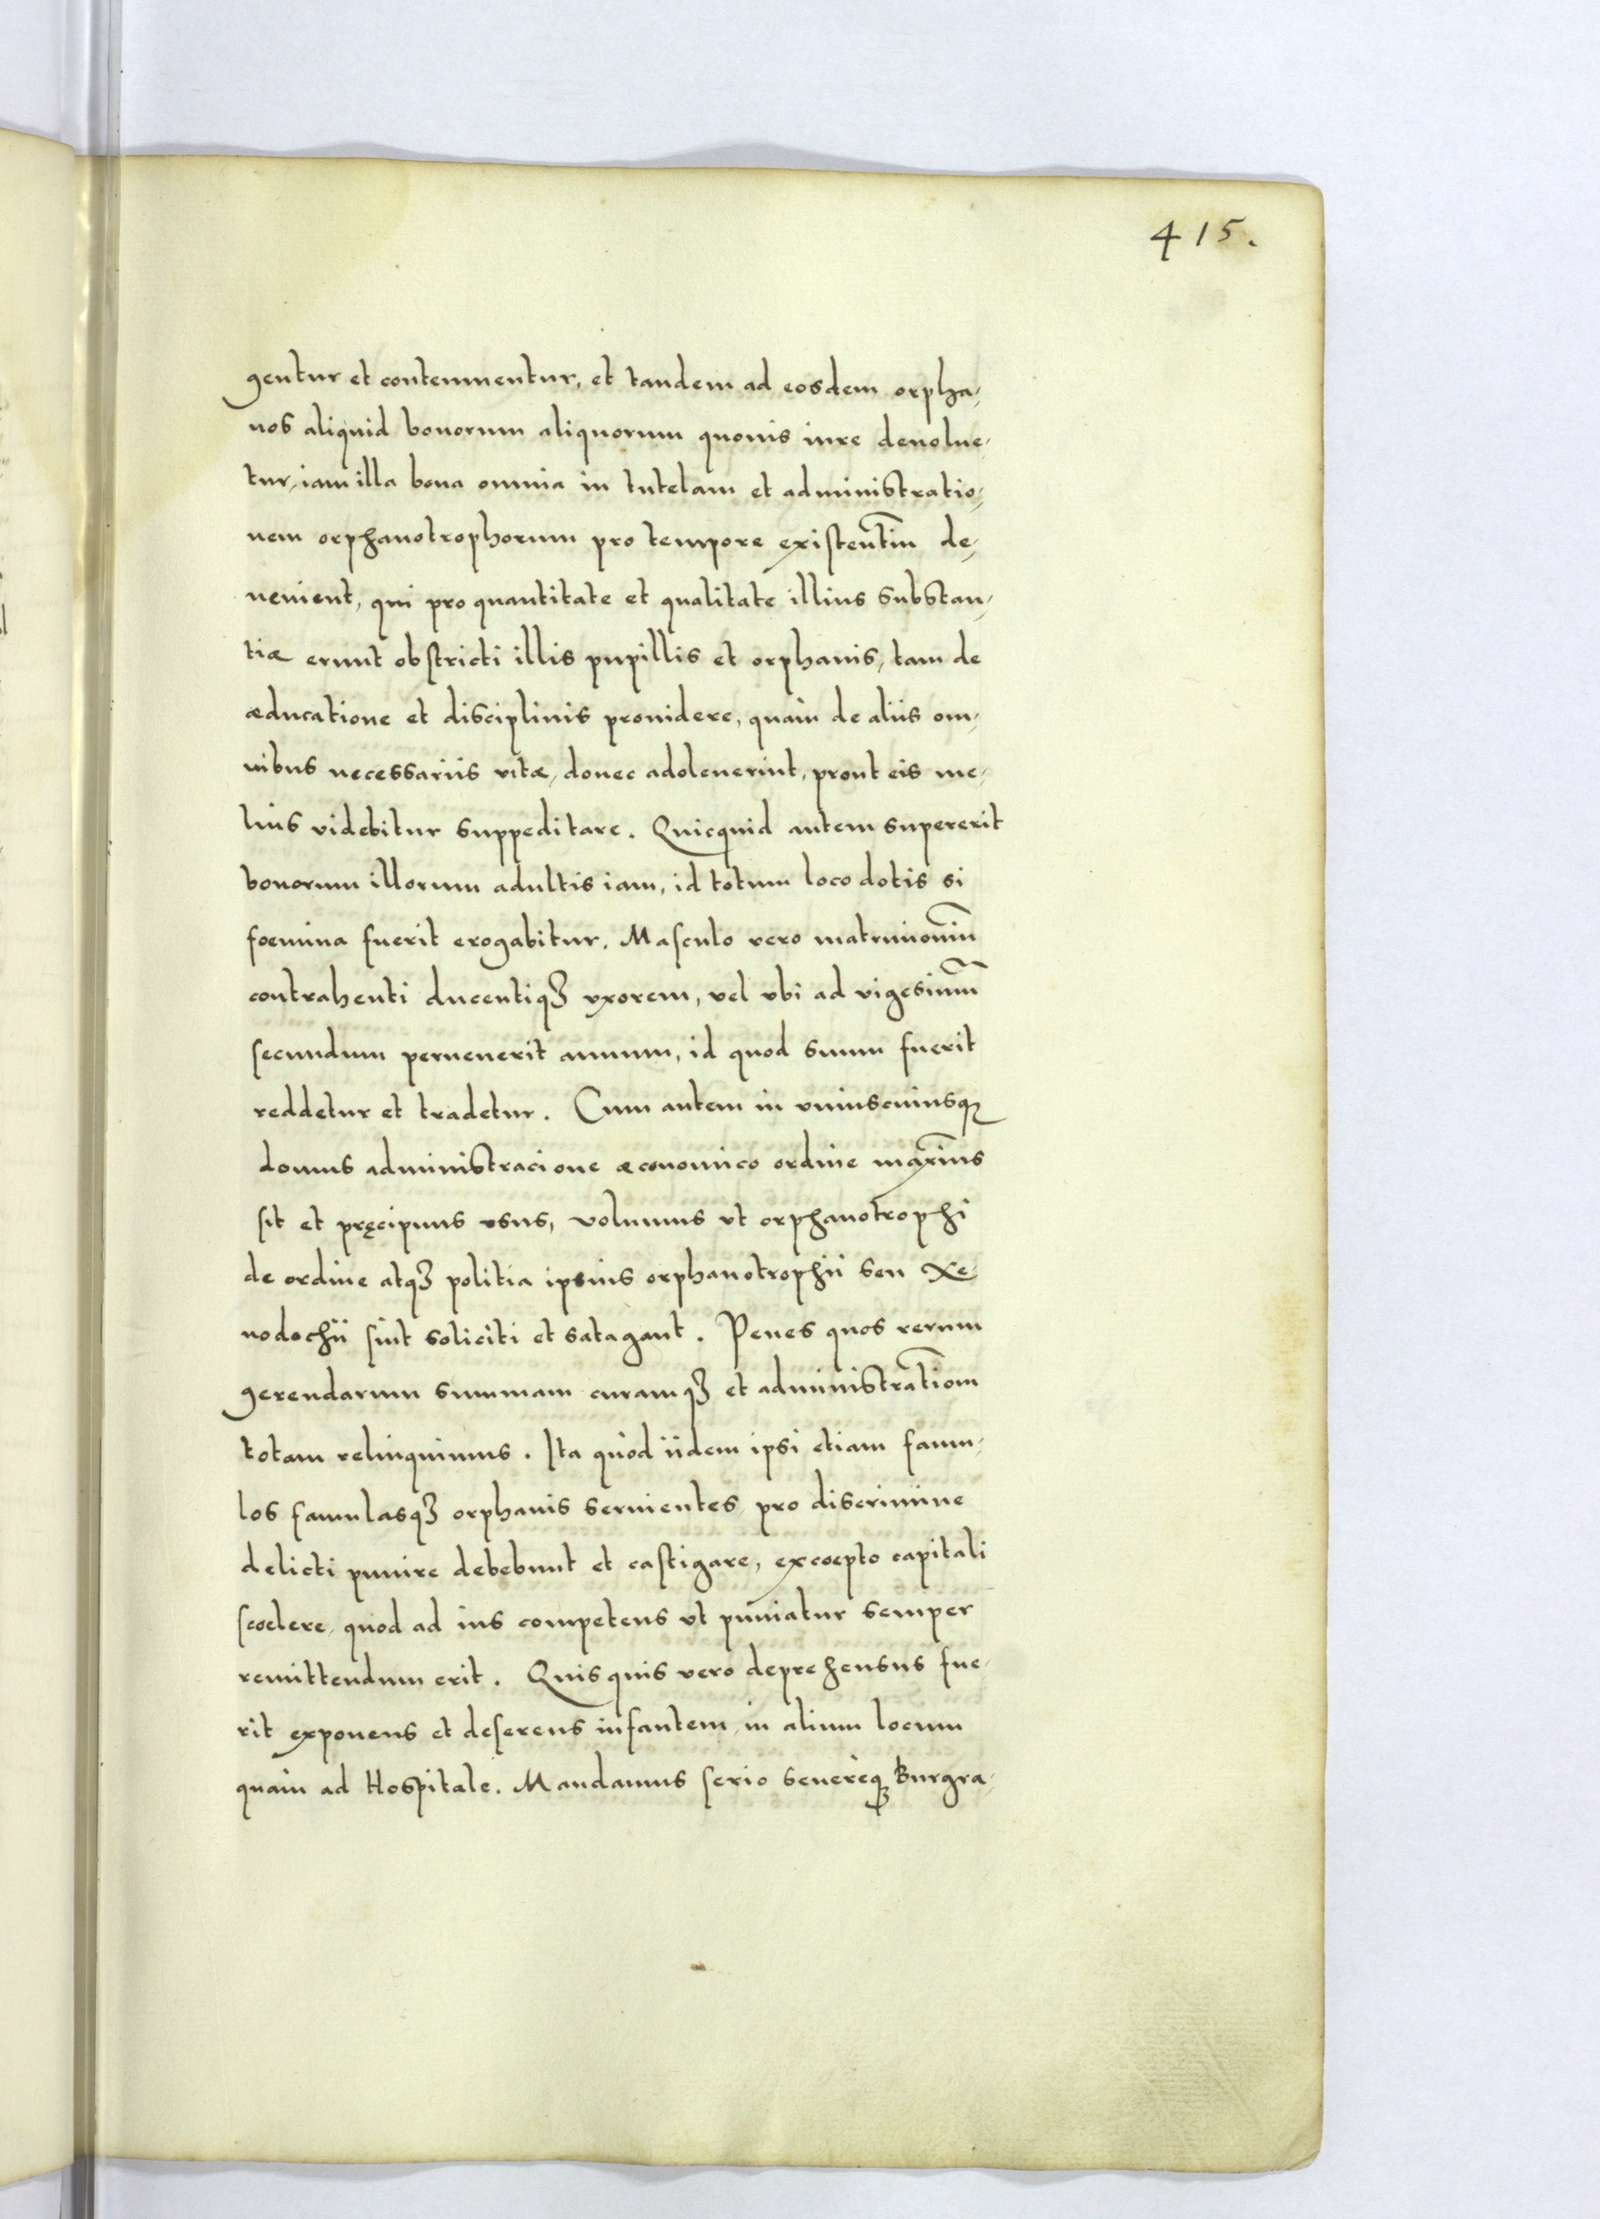 415.
gentur et contemnentur, et tandem ad eosdem orpha,
nos aliquid bonorum aliquorum quouis iure deuolue,
tur, iam illa bona omnia in tutelam et administratio,
nem orphanotrophorum pro tempore existentiũ de,
uenient, qui pro quantitate et qualitate illius substan,
tiæ erunt obstricti illis pupillis et orphanis, tam de
æducatione et disciplinis prouidere, quàm de aliis om,
nibus necessariis vitæ, donec adoleuerint, prout eis me,
lius videbitur suppeditare. Quicquid autem supererit
bonorum illorum adultis iam, id totum loco dotis si
foemina fuerit erogabitur. Masculo vero matrimoniũ
contrahenti ducentiqꝫ vxorem, vel vbi ad vigesimũ
secundum peruenerit annum, id quod suum fuerit
reddetur et tradetur. Cum autem in vniuscuiusqꝫ
domus administracione æconomico ordine maxim̃us
sit et pręcipuus vsus, volumus vt orphanotrophi
de ordine atqꝫ politia ipsius orphanotrophii seu Xe,
nodochii sint soliciti et satagant. Penes quos rerum
gerendarum summam curamqꝫ et administratiõm
totam relinquimus. Ita quòd iidem ipsi etiam famu,
los famulasqꝫ orphanis seruientes pro discrimine
delicti punire debebunt et castigare, excoepto capitali
scoelere, quod ad ius competens vt puniatur semper
remittendum erit. Quisquis vero deprehensus fue,
rit exponens et deserens infantem in alium locum
quàm ad Hospitale. Mandamus serio seuereqꝫ Burgra,